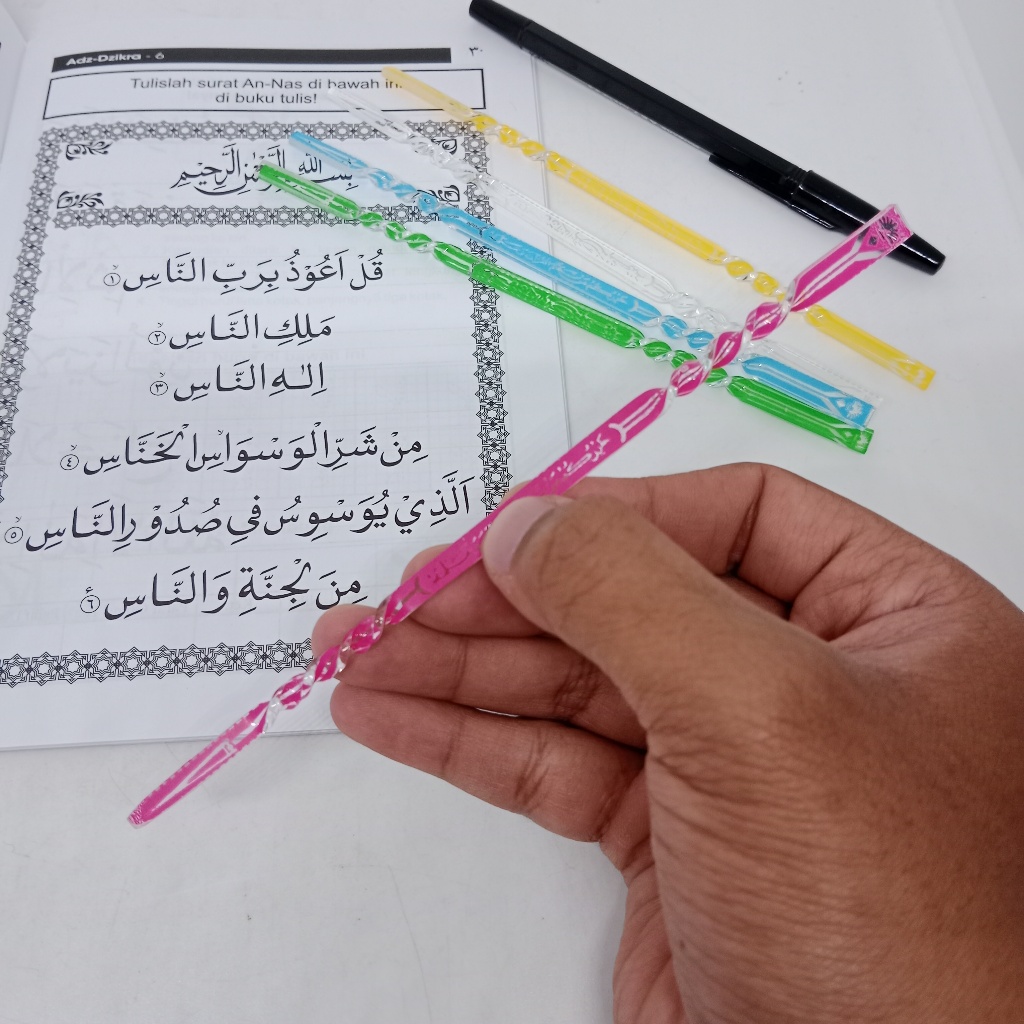 Adz-Dzikra - 6
٣٠
Tulislah surat An-Nas di bawah ini
di buku tulis!
بِسْمِ اللهِ الرَّحْمٰنِ الرَّحِيْمِ
قُلْ اَعُوْذُ بِرَبِّ النَّاسِ ١
مَلِكِ النَّاسِ ٢
اِلٰهِ النَّاسِ ٣
مِنْ شَرِّ الْوَسْوَاسِ الْخَنَّاسِ ٤
اَلَّذِيْ يُوَسْوِسُ فِى صُدُوْرِ النَّاسِ ٥
مِنَ الْجِنَّةِ وَالنَّاسِ ٦